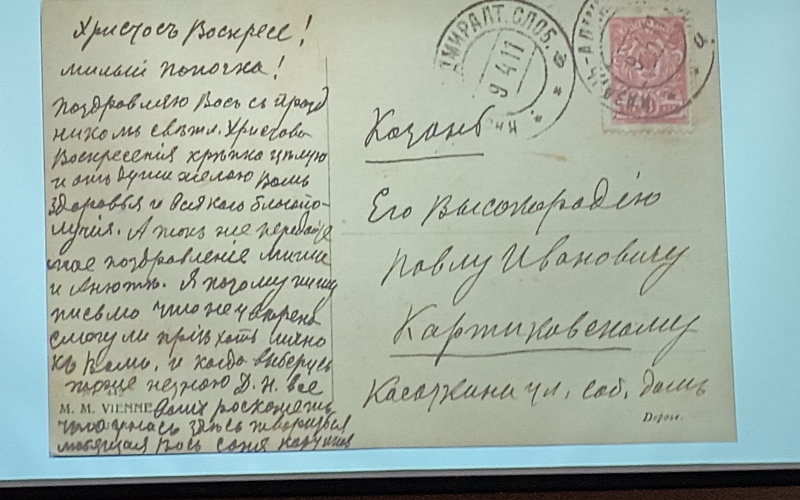 Христосъ Воскресе!
милый папочка!
поздравляю Васъ съ празд
никомъ свѣтл. Христова
Воскресенія крѣпко цѣлую
и отъ души желаю Вамъ
здоровья и всякаго благопо-
лучія. А такъ же передайте
мое поздравленіе Мише
и Анютѣ. Я потому пишу
письмо что не уверена
смогу ли пріѣхать лично
къ Вамъ, и когда выберусь
тоже незнаю Д. Н. все
M. M. VIENNE Вамъ роскажетъ
что у насъ здѣсь творится
любящая Васъ Соня
АДМИРАЛТ. СЛОБ.
9 4 11
Казань
Его Высокородію
Павлу Ивановичу
Картиковскому
ул. соб. домъ
Depose.